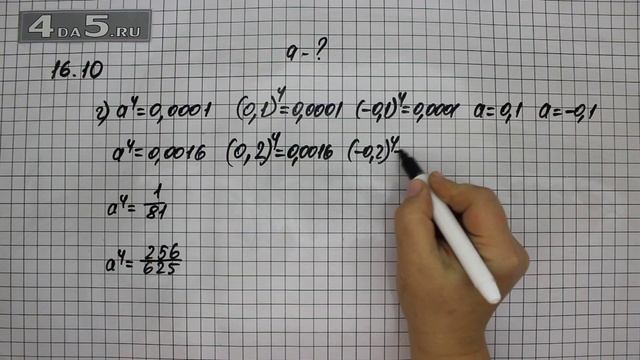 4DA5.RU
16.10 a - ?
г) a⁴=0,0001 (0,1)⁴=0,0001 (-0,1)⁴=0,0001 a=0,1 a=-0,1
a⁴=0,0016 (0,2)⁴=0,0016 (-0,2)⁴-
a⁴=1/81
a⁴=256/625